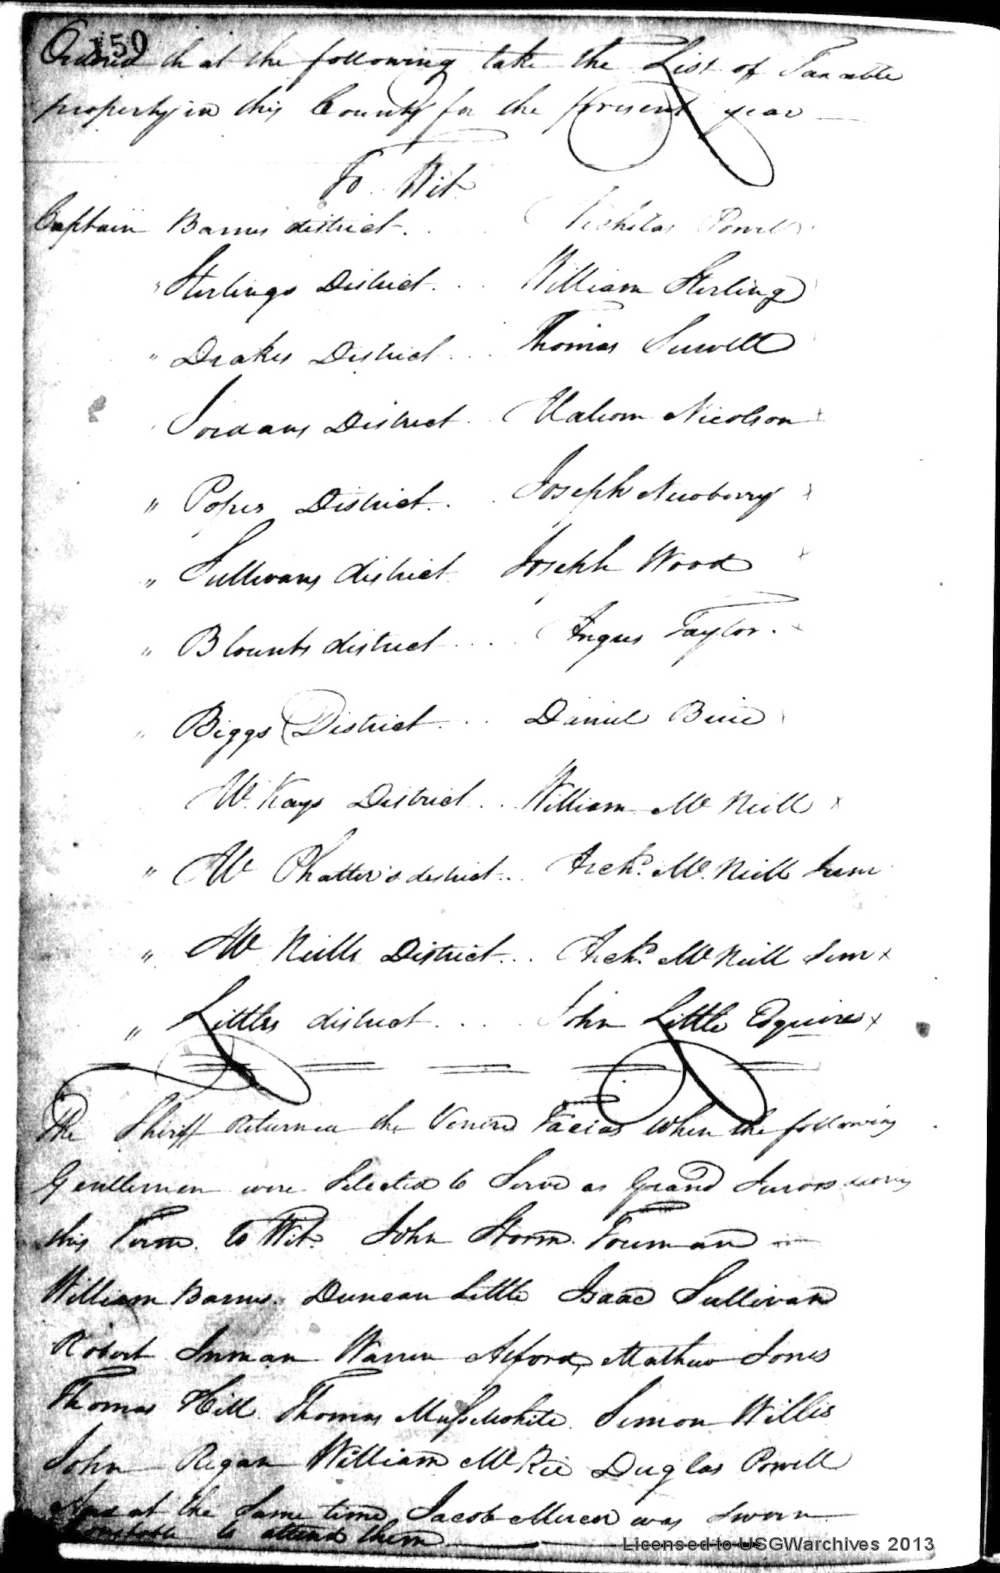 150
Ordered that the following take the List of Taxable
property in this County for the present year
To Wit
Captain Barnes district. Nicholas Powell
" Sterlings District. William Sterling
" Drakes District Thomas Sewell
Jordans District Malcom Nicolson
" Popes District. Joseph Newberry
" Sullivans district Joseph Wood
" Blounts district Angus Taylor.
" Biggs District Daniel Buie
McKays District William McNeill
" Mc Phatter's district Archd. McNeill
" McNeills District Archd. McNeill
" Littles district John Little Esquire
The Shiriff Returned the Venire Facias When the following
Gentlemen were Selected to Serve as Grand Jurors
this Term to Wit. John Storm Foreman
William Barnes. Duncan Little Isaac Sullivan
Robert Inman Warren Alford Mathew Jones
Thomas Hill Thomas Musselwhite Simon Willis
John Regan William McKee Duglas Powell
And at the Same time Jacob was Sworn
Constable to attend them
Licensed to USGWarchives 2013